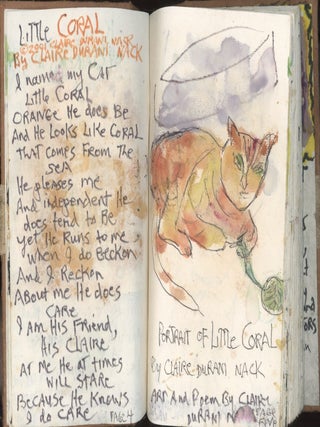 Little CORAL
©2001 CLAIRE DURANI NACK
By CLAIRE DURANI NACK
I named my CAT
Little CORAL
ORANGE He does Be
And He Looks Like CORAL
THAT comes From The
SEA
He pleases me
And independent He
does tend to Be
yet He Runs to me
when I do BeCKon
And I Reckon
About me He does
CARe
I Am His FRiend,
His CLAIRe
AT Me He at times
will STARe
Because He Knows
I do CARe
PAGE 4
PORTRAIT OF LITTLE CORAL
By CLAIRE DURANI NACK
ART And Poem By CLAIRE
DURANI N
PAGE
FIVE